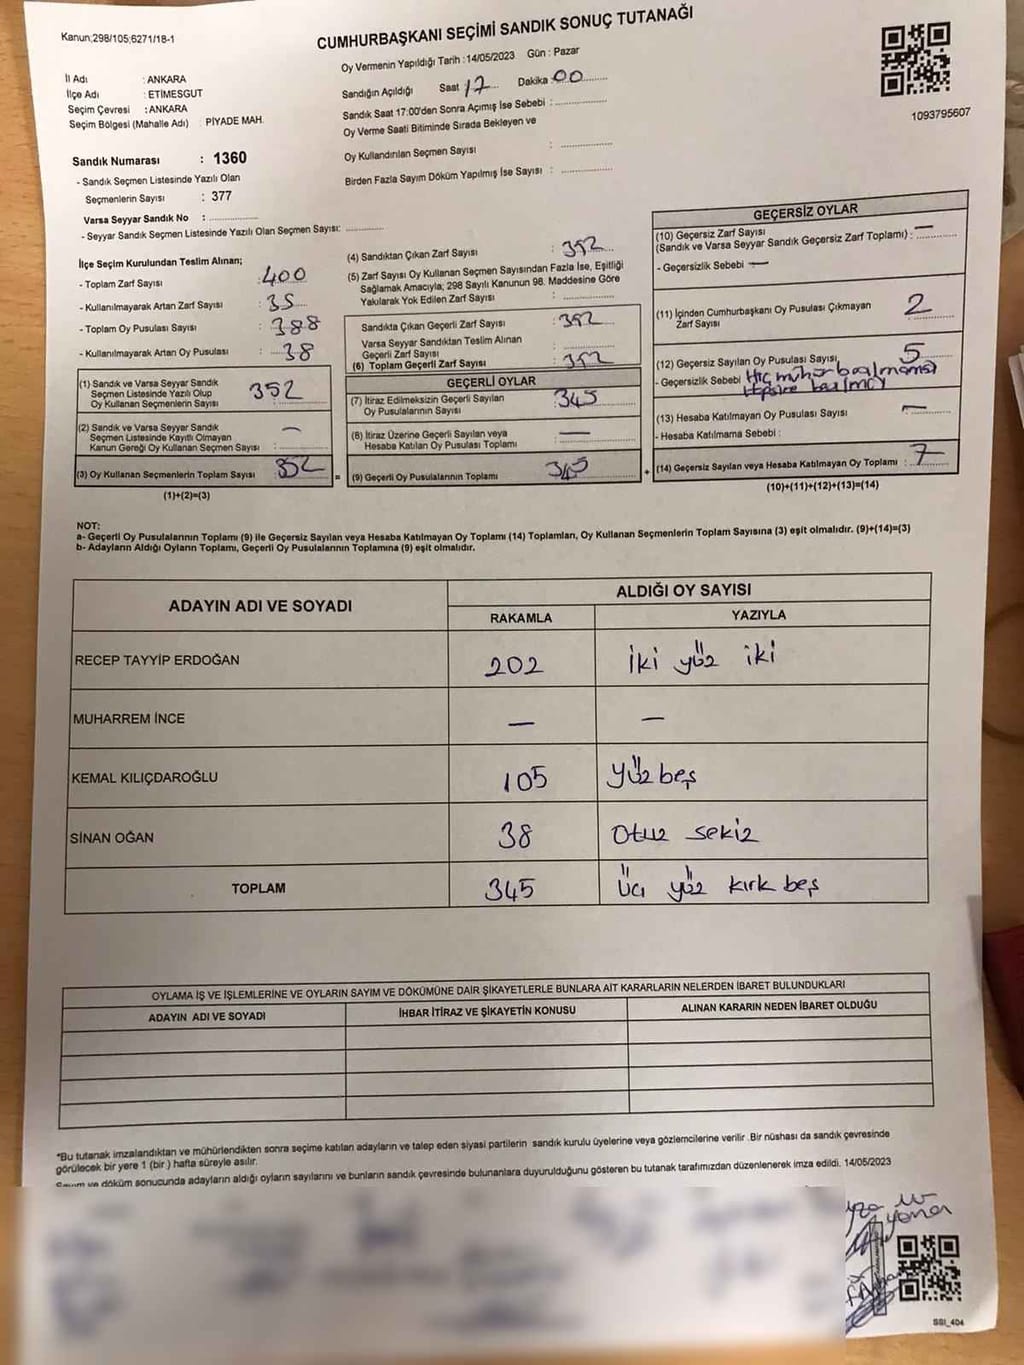 Kanun;298/105;6271/18-1
CUMHURBAŞKANI SEÇİMİ SANDIK SONUÇ TUTANAĞI
Oy Vermenin Yapıldığı Tarih :14/05/2023 Gün : Pazar
İl Adı : ANKARA
İlçe Adı : ETİMESGUT
Seçim Çevresi : ANKARA
Seçim Bölgesi (Mahalle Adı) : PİYADE MAH.
Sandığın Açıldığı Saat 17 Dakika :00
Sandık Saat 17:00'den Sonra Açımış İse Sebebi :
Oy Verme Saati Bitiminde Sırada Bekleyen ve
Oy Kullandırılan Seçmen Sayısı :
Birden Fazla Sayım Döküm Yapılmış İse Sayısı :
1093795607
Sandık Numarası : 1360
- Sandık Seçmen Listesinde Yazılı Olan
Seçmenlerin Sayısı : 377
Varsa Seyyar Sandık No :
- Seyyar Sandık Seçmen Listesinde Yazılı Olan Seçmen Sayısı:
İlçe Seçim Kurulundan Teslim Alınan;
- Toplam Zarf Sayısı : 400
- Kullanılmayarak Artan Zarf Sayısı : 35
- Toplam Oy Pusulası Sayısı : 388
- Kullanılmayarak Artan Oy Pusulası : 38
(1) Sandık ve Varsa Seyyar Sandık
Seçmen Listesinde Yazılı Olup
Oy Kullanan Seçmenlerin Sayısı : 352
(2) Sandık ve Varsa Seyyar Sandık
Seçmen Listesinde Kayıtlı Olmayan
Kanun Gereği Oy Kullanan Seçmen Sayısı : —
(3) Oy Kullanan Seçmenlerin Toplam Sayısı : 352
(1)+(2)=(3)
(4) Sandıktan Çıkan Zarf Sayısı : 352
(5) Zarf Sayısı Oy Kullanan Seçmen Sayısından Fazla İse, Eşitliği
Sağlamak Amacıyla; 298 Sayılı Kanunun 98. Maddesine Göre
Yakılarak Yok Edilen Zarf Sayısı :
Sandıkta Çıkan Geçerli Zarf Sayısı : 352
Varsa Seyyar Sandıktan Teslim Alınan
Geçerli Zarf Sayısı :
(6) Toplam Geçerli Zarf Sayısı : 352
GEÇERLİ OYLAR
(7) İtiraz Edilmeksizin Geçerli Sayılan
Oy Pusulalarının Sayısı : 345
(8) İtiraz Üzerine Geçerli Sayılan veya
Hesaba Katılan Oy Pusulası Toplamı : —
= (9) Geçerli Oy Pusulalarının Toplamı : 345
GEÇERSİZ OYLAR
(10) Geçersiz Zarf Sayısı
(Sandık ve Varsa Seyyar Sandık Geçersiz Zarf Toplamı) : —
- Geçersizlik Sebebi —
(11) İçinden Cumhurbaşkanı Oy Pusulası Çıkmayan
Zarf Sayısı : 2
(12) Geçersiz Sayılan Oy Pusulası Sayısı : 5
- Geçersizlik Sebebi Hiç mühür basılmamış
Hepsine basılmış
(13) Hesaba Katılmayan Oy Pusulası Sayısı : —
- Hesaba Katılmama Sebebi :
+ (14) Geçersiz Sayılan veya Hesaba Katılmayan Oy Toplamı : 7
(10)+(11)+(12)+(13)=(14)
NOT:
a- Geçerli Oy Pusulalarının Toplamı (9) ile Geçersiz Sayılan veya Hesaba Katılmayan Oy Toplamı (14) Toplamları, Oy Kullanan Seçmenlerin Toplam Sayısına (3) eşit olmalıdır. (9)+(14)=(3)
b- Adayların Aldığı Oyların Toplamı, Geçerli Oy Pusulalarının Toplamına (9) eşit olmalıdır.
ADAYIN ADI VE SOYADI
ALDIĞI OY SAYISI
RAKAMLA YAZIYLA
RECEP TAYYİP ERDOĞAN 202 iki yüz iki
MUHARREM İNCE — —
KEMAL KILIÇDAROĞLU 105 yüz beş
SİNAN OĞAN 38 otuz sekiz
TOPLAM 345 üç yüz kırk beş
OYLAMA İŞ VE İŞLEMLERİNE VE OYLARIN SAYIM VE DÖKÜMÜNE DAİR ŞİKAYETLERLE BUNLARA AİT KARARLARIN NELERDEN İBARET BULUNDUKLARI
ADAYIN ADI VE SOYADI İHBAR İTİRAZ VE ŞİKAYETİN KONUSU ALINAN KARARIN NEDEN İBARET OLDUĞU
*Bu tutanak imzalandıktan ve mühürlendikten sonra seçime katılan adayların ve talep eden siyasi partilerin sandık kurulu üyelerine veya gözlemcilerine verilir .Bir nüshası da sandık çevresinde
görülecek bir yere 1 (bir ) hafta süreyle asılır.
Sayım ve döküm sonucunda adayların aldığı oyların sayılarını ve bunların sandık çevresinde bulunanlara duyurulduğunu gösteren bu tutanak tarafımızdan düzenlenerek imza edildi. 14/05/2023
SSI_404